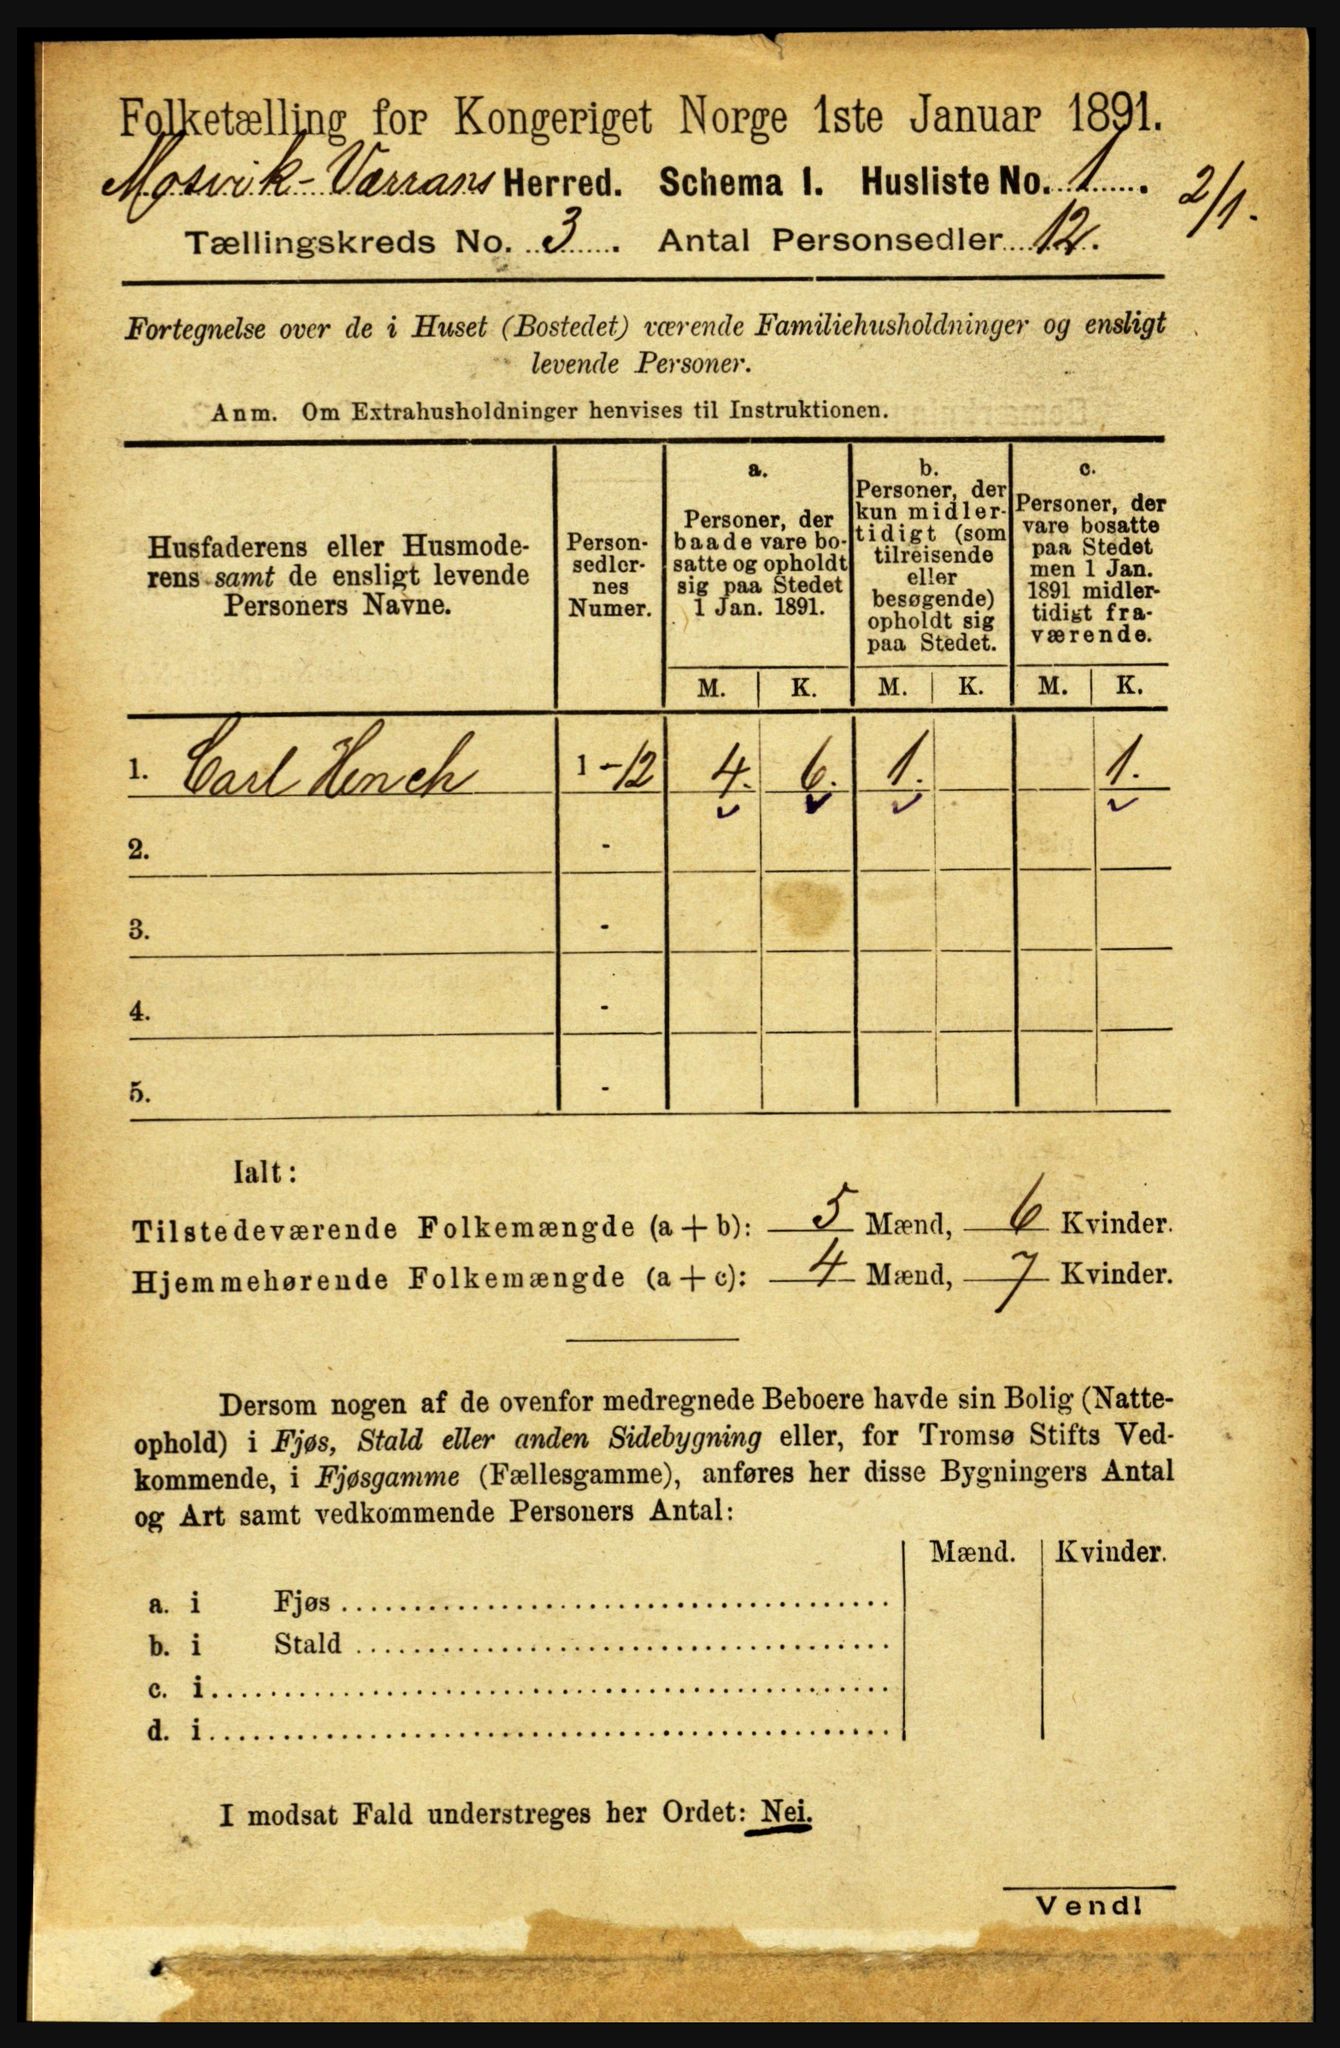 Folketælling for Kongeriget Norge 1ste Januar 1891.
Mosvik-Værrans Herred. Schema I. Husliste No. 1.
2/1.
Tællingskreds No. 3. Antal Personsedler 12.
Fortegnelse over de i Huset (Bostedet) værende Familiehusholdninger og ensligt
levende Personer.
Anm. Om Extrahusholdninger henvises til Instruktionen.
Husfaderens eller Husmode-
rens samt de ensligt levende
Personers Navne.
Person-
sedler-
nes
Numer.
a.
Personer, der
baade vare bo-
satte og opholdt
sig paa Stedet
1 Jan. 1891.
M. K.
b.
Personer, der
kun midler-
tidigt (som
tilreisende
eller
besøgende)
opholdt sig
paa Stedet.
M. K.
c.
Personer, der
vare bosatte
paa Stedet
men 1 Jan.
1891 midler-
tidigt fra-
værende.
M. K.
1. Carl Hench 1-12 4. 6. 1. 1.
2. -
3. -
4. -
5. -
Ialt:
Tilstedeværende Folkemængde (a + b): 5 Mænd, 6 Kvinder.
Hjemmehørende Folkemængde (a + c): 4 Mænd, 7 Kvinder.
Dersom nogen af de ovenfor medregnede Beboere havde sin Bolig (Natte-
ophold) i Fjøs, Stald eller anden Sidebygning eller, for Tromsø Stifts Ved-
kommende, i Fjøsgamme (Fællesgamme), anføres her disse Bygningers Antal
og Art samt vedkommende Personers Antal:
Mænd. Kvinder.
a. i Fjøs
b. i Stald
c. i
d. i
I modsat Fald understreges her Ordet: Nei.
Vend!